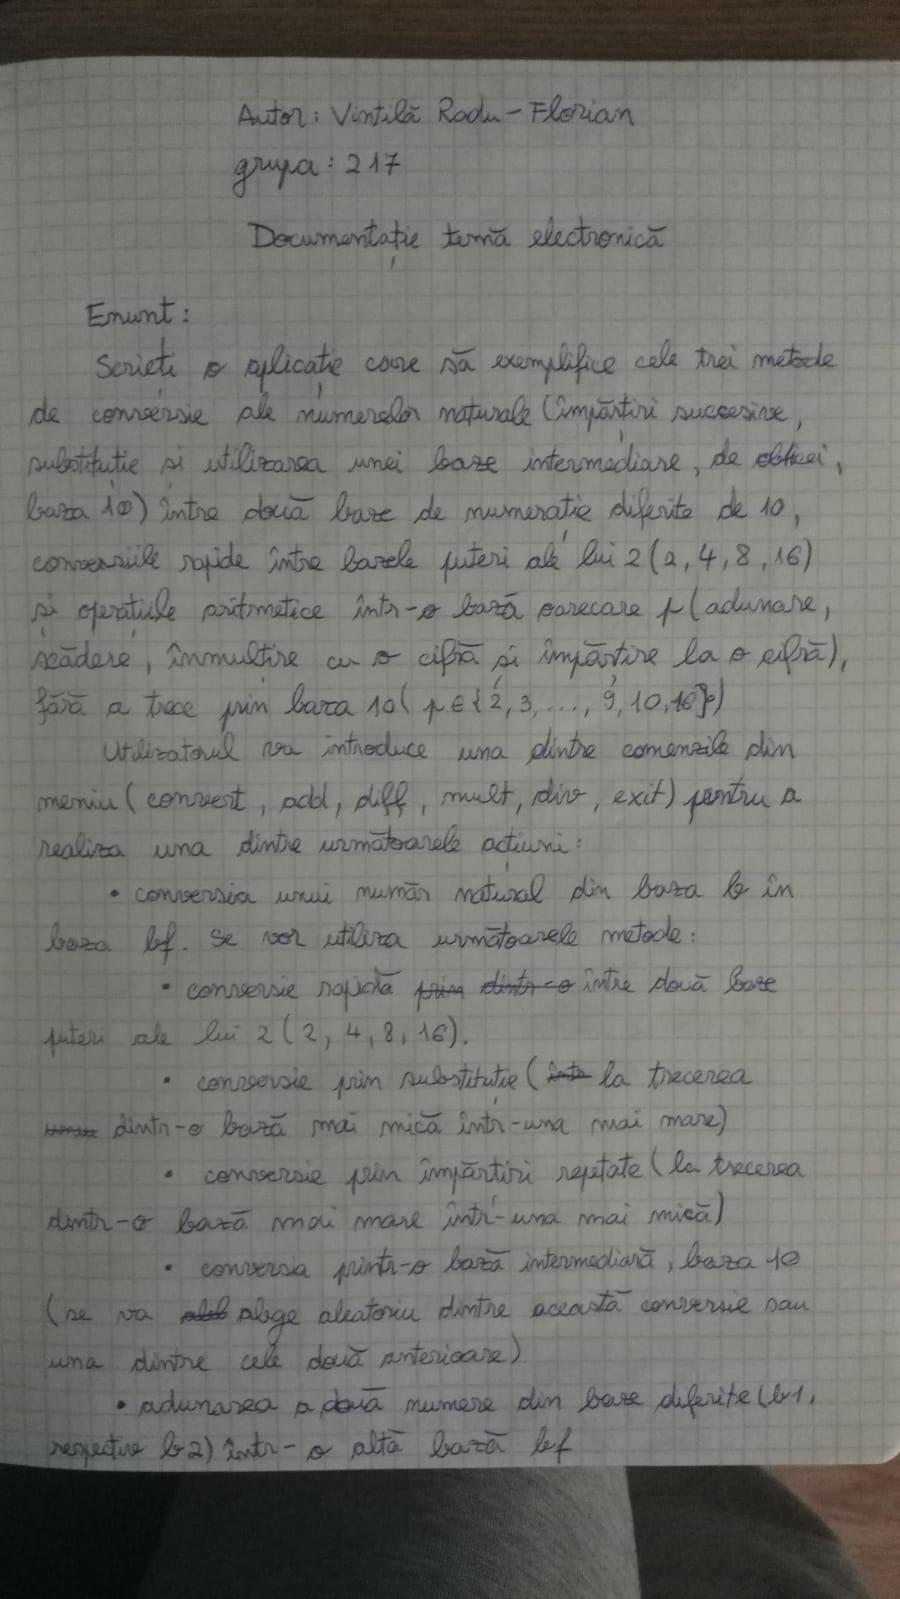 Autor: Vintilă Radu-Florian
grupa: 217
Documentație temă electronică
Enunț:
Scrieți o aplicație care să exemplifice cele trei metode
de conversie ale numerelor naturale (împărțiri succesive,
substituție și utilizarea unei baze intermediare, de obicei,
baza 10) între două baze de numerație diferite de 10,
conversiile rapide între bazele puteri ale lui 2 (2, 4, 8, 16)
și operațiile aritmetice într-o bază oarecare p (adunare,
scădere, înmulțire cu o cifră și împărțire la o cifră),
fără a trece prin baza 10 (p∈{2, 3, ..., 9, 10, 16})
Utilizatorul va introduce una dintre comenzile din
meniu (convert, add, diff, mult, div, exit) pentru a
realiza una dintre următoarele acțiuni:
• conversia unui număr natural din baza b în
baza bf. Se vor utiliza următoarele metode:
• conversie rapidă prin dintr-o între două baze
puteri ale lui 2 (2, 4, 8, 16).
• conversie prin substituție (într la trecerea
dintr-o bază mai mică într-una mai mare)
• conversie prin împărțiri repetate (la trecerea
dintr-o bază mai mare într-una mai mică)
• conversia printr-o bază intermediară, baza 10
(se va alege aleatoriu dintre această conversie sau
una dintre cele două anterioare)
• adunarea a două numere din baze diferite (b1,
respectiv b2) într-o altă bază bf